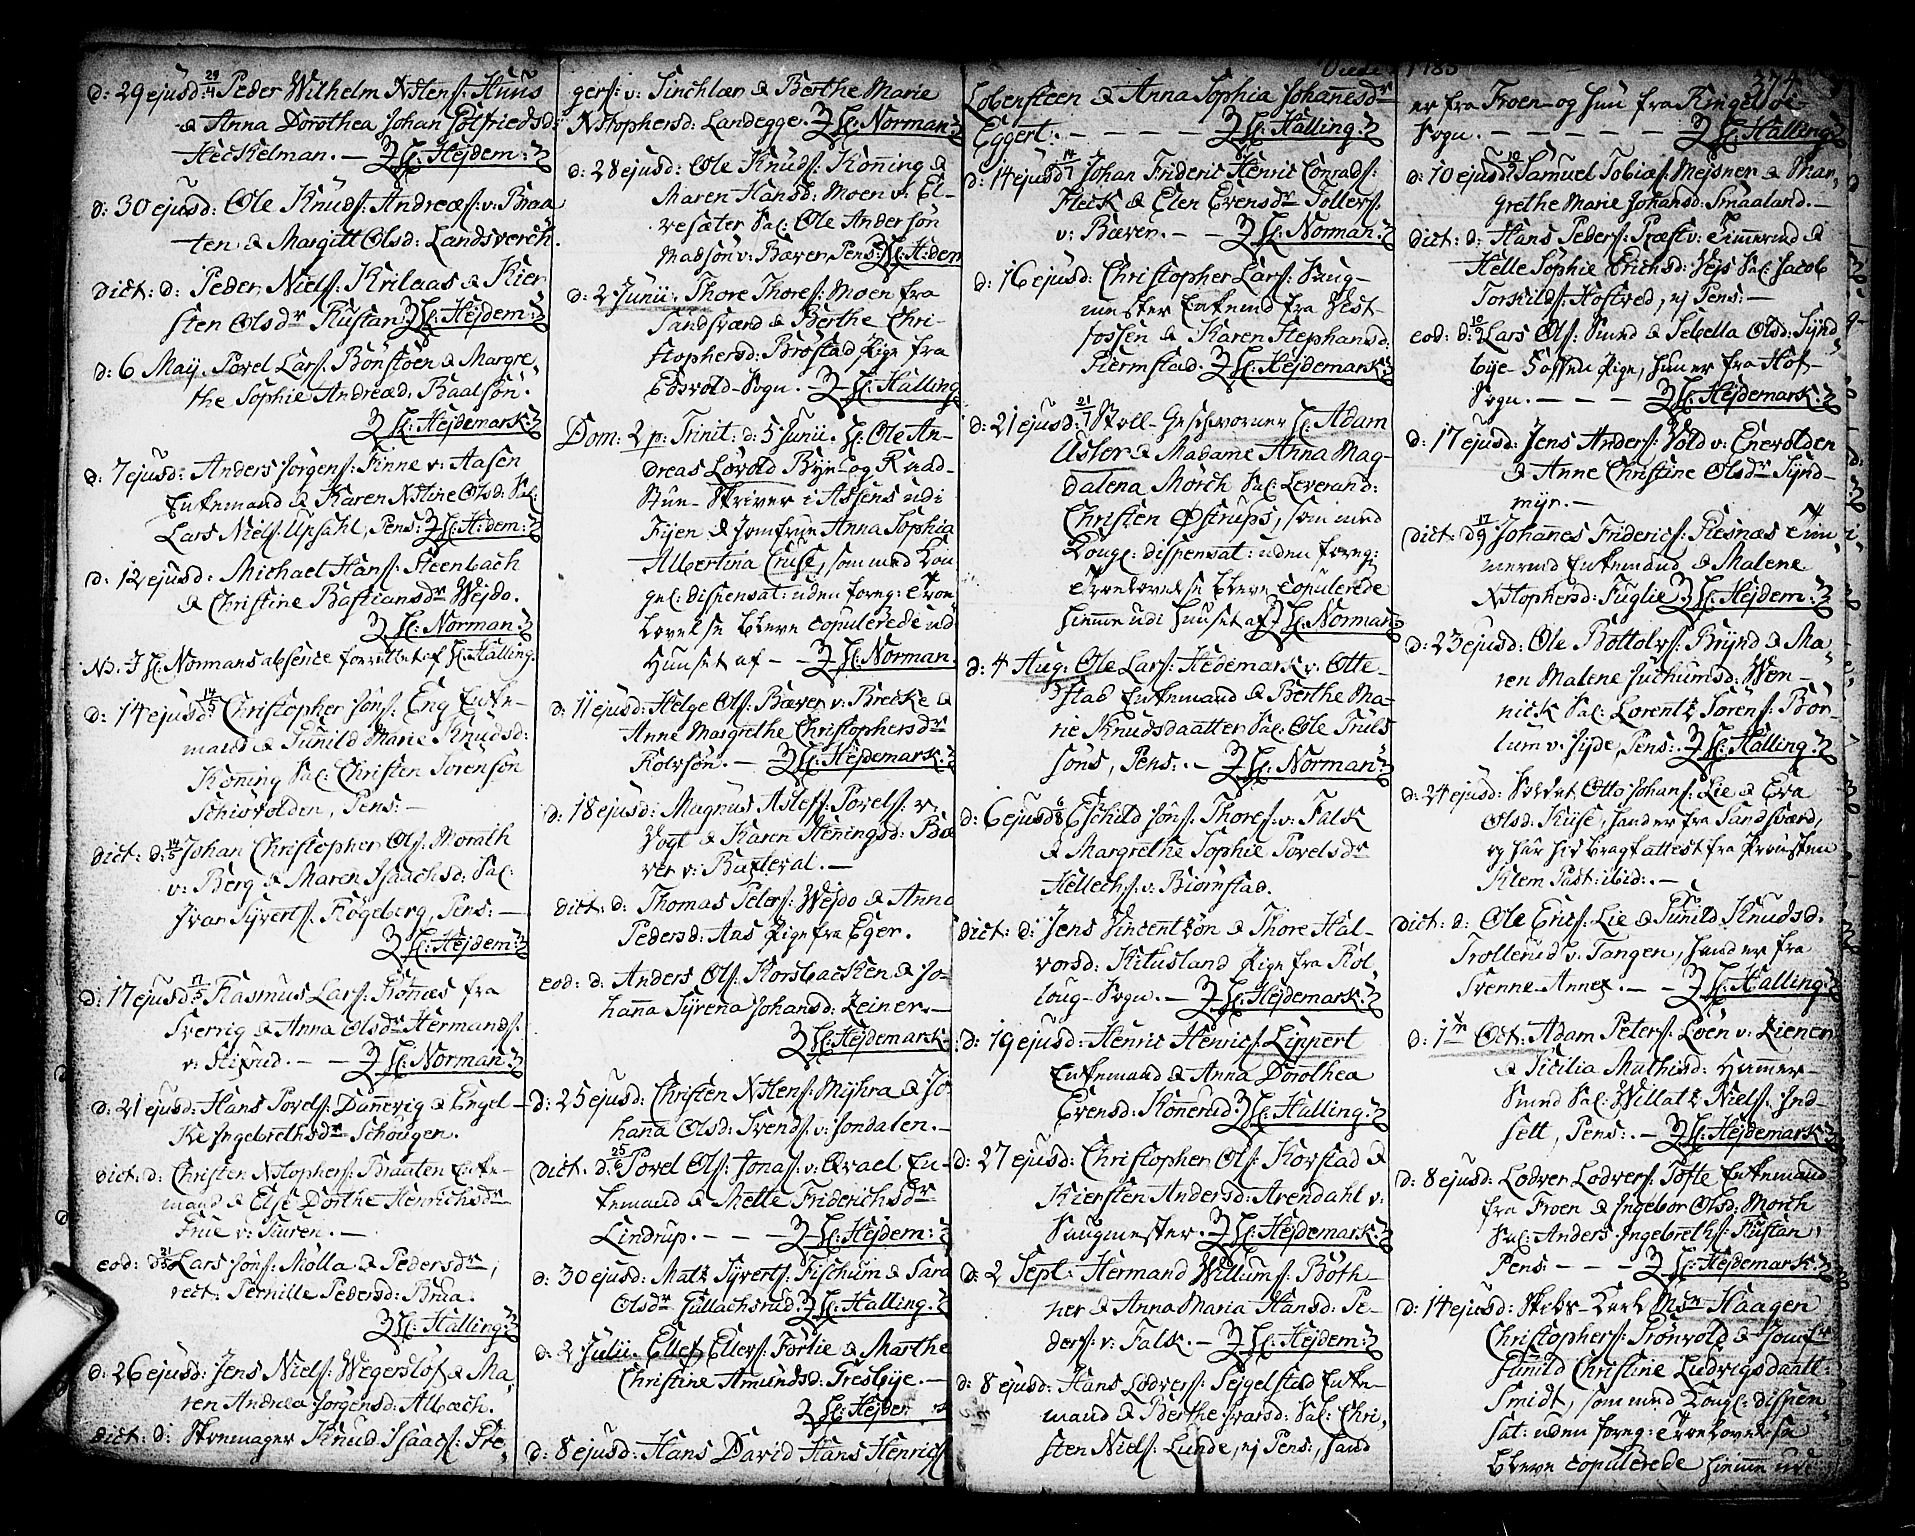 Viede 1785
374
d: 29 ejusd: 29/4 Peder Wilhelm Nilens: Huus
& Anna Dorothea Johan Gotfriedsd:
Heckelman. — H: Hejdem:
d: 30 ejusd: Ole Knuds: Andreæs: v: Braa
ten & Margitt Olsd: Landsverch.
Dict: d: Peder Niels: Krilaas & Kier
sten Olsdr Rustan. H: Hejdem:
d: 6 Maij. Povel Lars: Bönstöen & Margre,
the Sophie Andreæd: Baalsön.
H: Hejdemark:
d: 7 ejusd: Anders Jörgens: Finne v: Aasen
Enkemand & Karen Nstine Olsd: Sal:
Lars Niels: Upsahl, Pens: H: H:dem:
d: 12 ejusd: Michael Hans: Steenbach
& Christine Bastiansdr Wejdo.
H: Norman:
NB. I H: Normans absence forrettet af H: Halling.
d: 14 ejusd: 14/5 Christopher Jöns: Eng Enke-
mand & Gunild Marie Knudsd:
Köning Sal: Christen Sörensön
Schisvolden, Pens: —
Dict: d: 14/5 Johan Christopher Ols: Morath
v: Berg & Maren Isaachsd: Sal:
Ivar Syverts: Kogeberg, Pens: —
H: Hejdem:
d: 17 ejusd: 17/5 Rasmus Lars: Konnæs fra
Sverrig & Anna Olsdr Hermands:
v: Stixrud. — — H: Norman:
d: 21 ejusd: Hans Povels: Dannevig & Engel-
ke Ingebrethsdr Schougen.
Dict: d: Christen Nstophers: Braaten Enke-
mand & Else Dorthe Henrichsdr
Frue v: Turen. —
eod: d: 21/5 Lars Jöns: Molla & Pedersdr,
rect: Pernille Pedersd: Brua.
H: Halling:
d: 26 ejusd: Jens Niels: Wegerslöf & Ma,
ren Andrea Jörgensd: Albach.
Dict: d: Skomager Knud Isaacs: Pre,
gers: v: Sinchlær & Berthe Marie
Nstophersd: Landegge. H: Norman:
d: 28 ejusd: Ole Knuds: Köning &
Maren Hansd: Moen v: El-
vesæter Sal: Ole Andersön
Madsön v: Bæver, Pens: H: H:dem
d: 2 Junii. Thore Thores: Moen fra
Sandsværd & Berthe Chri-
stophersd: Bröstad Pige fra
Edsvold-Sogn. — H: Halling
Dom: 2 p: Trinit: d: 5 Junii. H: Ole An-
dreas Lövold Bye- og Raad-
Stue-Skriver i Assens udi
Fijen & Jomfrue Anna Sophia
Albertina Cruse, som med Kon
gel: dispensat: uden foreg: Troe
lovelse bleve copulerede udi
Huuset af — — H: Norman
d: 11 ejusd: Helge Ols: Bæver v: Brekke &
Anne Margrethe Christophersdr
Rolvsön. — H: Hejdemark:
d: 18 ejusd: Magnus Aslefs: Povels: v:
Vogt & Karen Heningsd: Bæ
ver v: Baxteval. —
Dict: d: Thomas Peters: Wejdo & Anna
Pedersd: Aas Pige fra Eger.
eod: d: Anders Ols: Korsbacken & Jo-
hana Syrena Johansd: Zeiner. —
H: Hejdemark
d: 25 ejusd: Christen Nstens: Myhra & Jo
hana Olsd: Svends: v: Jondalen. —
Dict: d: 25/6 Povel Ols: Jonas: v: Qvael En-
kemand & Mette Friderichsdr
Lindrup. — — — H: Hejdem:
d: 30 ejusd: Matz Syverts: Fischum & Sara
Olsdr Gullachsrud. H: Halling:
d: 2 Julii. Ellef Ellefs: Förlie & Marthe
Christine Amundsd: Tresbye. —
H: Hejdem
d: 8 ejusd: Hans David Hans Henrics:
Lobensteen & Anna Sophia Johanesdr
Eggert. — — — — H: Halling:
d: 14 ejusd: 14/7 Johan Frideric Henric Conrads:
Fleck & Elen Evensdr Tollers:
v: Bæver. — — H: Norman:
d: 16 ejusd: Christopher Lars: Saug-
mester Enkemd fra Vest-
fossen & Karen Stephansd:
Fiermstad. H: Hejdemark:
d: 21 ejusd: 21/7 Stoll-Geschworner H: Adam
Aster & Madame Anna Mag-
dalena Mörch Sal: Leverand:
Christen Östrups, som med
Kongl: dispensat: uden foreg:
Troelovelse bleve copulerede
hiemme udi Huuset af H: Norman
d: 4 Aug: Ole Lars: Hedemark v: Otte-
stad Enkemand & Berthe Ma-
rie Knudsdaatter Sal: Ole Truls
söns, Pens: — H: Norman:
d: 6 ejusd: 6/8 Eschild Jöns: Thores: v: Falk
& Margrethe Sophie Povelsdr
Hellechs: v: Biörnstad.
Dict: d: Jens Vincentzön & Thore Hal-
vorsd: Kitusland Pige fra Rol,
loug-Sogn. — H: Hejdemark:
d: 19 ejusd: Henric Henrics: Lippert
Enkemand & Anna Dorothea
Evensd: Könerud. H: Halling:
d: 27 ejusd: Christopher Ols: Korstad &
Kiersten Andersd: Arendahl v:
Saugmester. H: Hejdemark:
d: 2 Sept: Hermand Willums: Böth-
ner & Anna Maria Hansd: Pe-
ders: v: Falk. — H: Hejdem:
d: 8 ejusd: Hans Lodvers: Sejgelstad Enke-
mand & Berthe Ivarsd: Sal: Chri,
sten Niels: Lunde, ej Pens:, hand
er fra Froen og hun fra Ringesoe-
Sogn. — — — — — H: Halling:
d: 10 ejusd: 10/9 Samuel Tobiæs: Mejsner & Mar,
grethe Marie Johansd: Smaaland. —
Dict: d: Hans Peders: Præst v: Timermd &
Helle Sophie Erichsd: Vejs Sal: Jacob
Torkilds: Hostved, ej Pens: —
eod: d: 10/9 Lars Ols: Smed & Sebella Olsd: Synd
bye- Fossen Pige, hun er fra Hof-
Sogn. — — — H: Hejdemark:
d: 17 ejusd: Jens Anders: Vold v: Enevolden
& Anne Christine Olsdr Synd-
myr. —
Dict: d 17/9 Johanes Friderics: Resnæs Tim-
mermd Enkemand & Malene
Nstophersd: Fuglie. H: Hejdem:
d: 23 ejusd: Ole Bottolvs: Brynd & Ma,
ren Malene Juchumsd: Wen-
nick Sal: Lorentz Sörens: Bor-
lum v: Sijde, Pens: — H: Halling:
d: 24 ejusd: Soldat Otto Johans: Lie & Eva
Olsd: Kuse, hand er fra Sandsværd,
og har hid bragt attest fra Provsten
Klem Past: ibid: —
Dict: d: Ole Encs: Lie & Gunild Knudsd:
Trollerud v: Tangen, hand er fra
Svenne-Annex. — — H: Halling:
d: 1ste Oct: Adam Peters: Löen v: Zienen
& Sicilia Mathisd: Hamer-
Smed Sal: Willatz Niels: Ind-
sett, Pens: — H: Hejdemark:
d: 8 ejusd: Lodver Lodvers: Tofte Enkemand
fra Froen & Ingebor Olsd: Morch
Sal: Anders Ingebreths: Rustan,
Pens: — — — H: Hejdemark:
d: 14 ejusd: Skebs-Kark Msr Haagen
Christophers: Grönvold & Jomfr
Gunild Christine Ludvigsdaatt:
Smidt, som med Kongl: dispen-
sat: uden foreg: Troelovelse
bleve copulerede hiemme udi